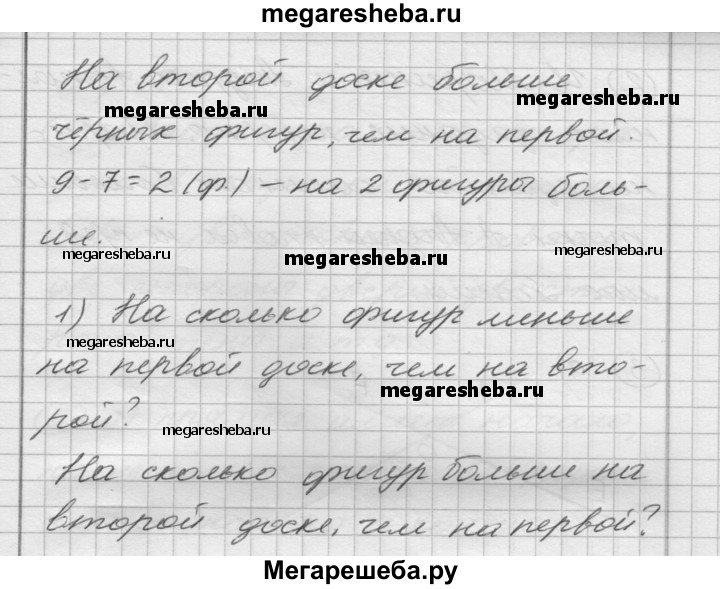 megaresheba.ru
На второй доске больше
megaresheba.ru
megaresheba.ru
чёрных фигур, чем на первой.
9-7=2 (ф.) – на 2 фигуры боль-
ше.
megaresheba.ru
megaresheba.ru
megaresheba.ru
1) На сколько фигур меньше
megaresheba.ru
на первой доске, чем на вто-
megaresheba.ru
рой?
megaresheba.ru
На сколько фигур больше на
второй доске, чем на первой?
Мегарешеба.ру